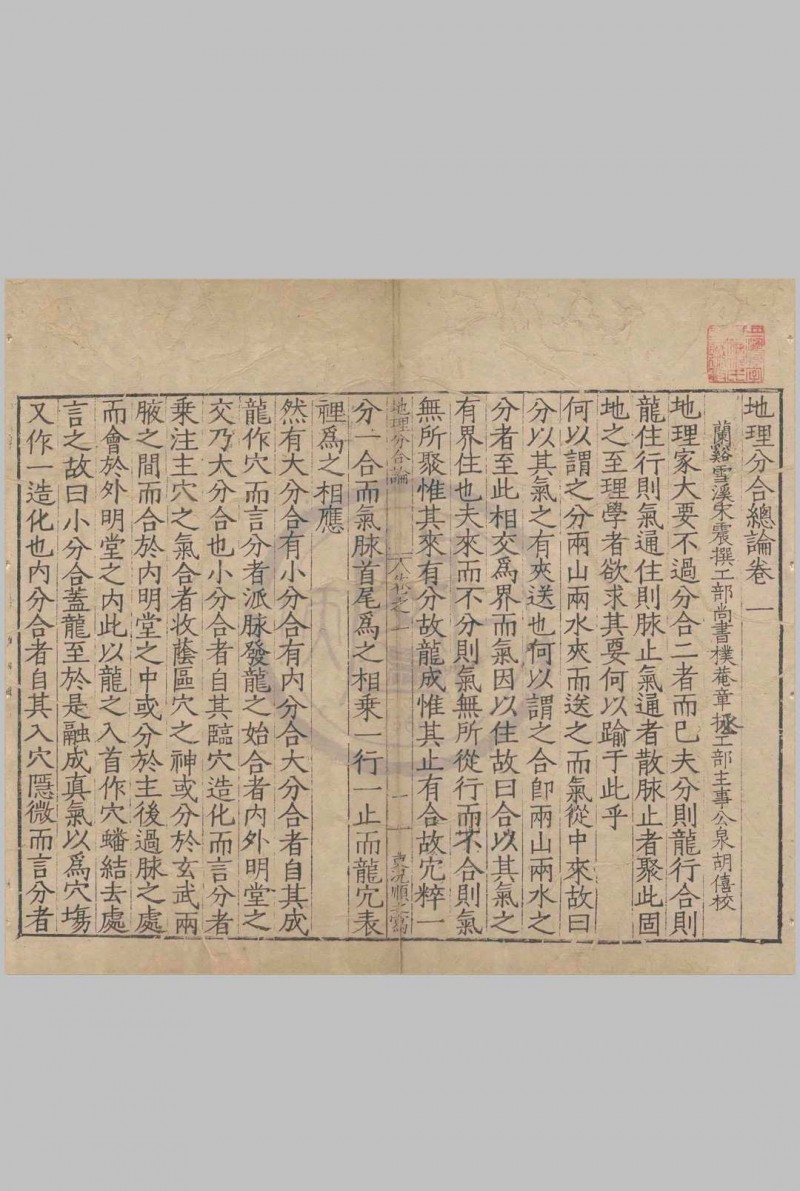 地理分合總論卷一
蘭谿雪溪宋震撰工部尚書樸菴章拯工部主事公泉胡僖校
地理家大要不過分合二者而已夫分則龍行合則
龍住行則氣通住則脉止氣通者散脉止者聚此固
地之至理學者欲求其要何以踰于此乎
何以謂之分兩山兩水夾而送之而氣從中來故曰
分以其氣之有夾送也何以謂之合卽兩山兩水之
分者至此相交爲界而氣因以住故曰合以其氣之
有界住也夫來而不分則氣無所從行而不合則氣
無所聚惟其來有分故龍成惟其止有合故穴粹一
地理分合論
卷之一
一
分一合而氣脉首尾爲之相乗一行一止而龍穴表
裡爲之相應
然有大分合有小分合有内分合大分合者自其成
龍作穴而言分者派脉發龍之始合者内外明堂之
交乃大分合也小分合者自其臨穴造化而言分者
乗注主穴之氣合者收蔭區穴之神或分於玄武兩
腋之間而合於内明堂之中或分於主後過脉之處
而會於外明堂之内此以龍之入首作穴蟠結去處
言之故曰小分合蓋龍至於是融成真氣以爲穴塲
又作一造化也内分合者自其入穴隱微而言分者